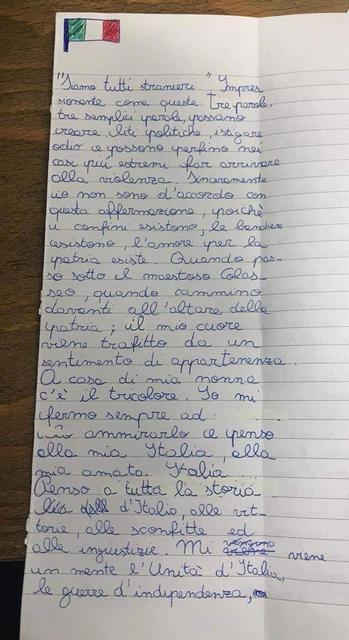 "Siamo tutti stranieri" Impres
sionante come queste tre parole,
tre semplici parole, possano
creare liti politiche, istigare
odio e possono perfino nei
casi più estremi far arrivare
alla violenza. Sinceramente
io non sono d'accordo con
questa affermazione, poichè
i confini esistono, le bandiere
esistono, l'amore per la
patria esiste. Quando pas-
so sotto il maestoso Colos-
seo, quando cammino
davanti all'altare della
patria; il mio cuore
viene trafitto da un
sentimento di appartenenza.
A casa di mia nonna
c'è il tricolore. Io mi
fermo sempre ad
ammirarlo e penso
alla mia Italia, alla
mia amata Italia.
Penso a tutta la storia
d'Italia, alle vit
torie, alle sconfitte ed
alle ingiustizie. Mi viene
in mente l'Unità d'Italia,
le guerre d'indipendenza,